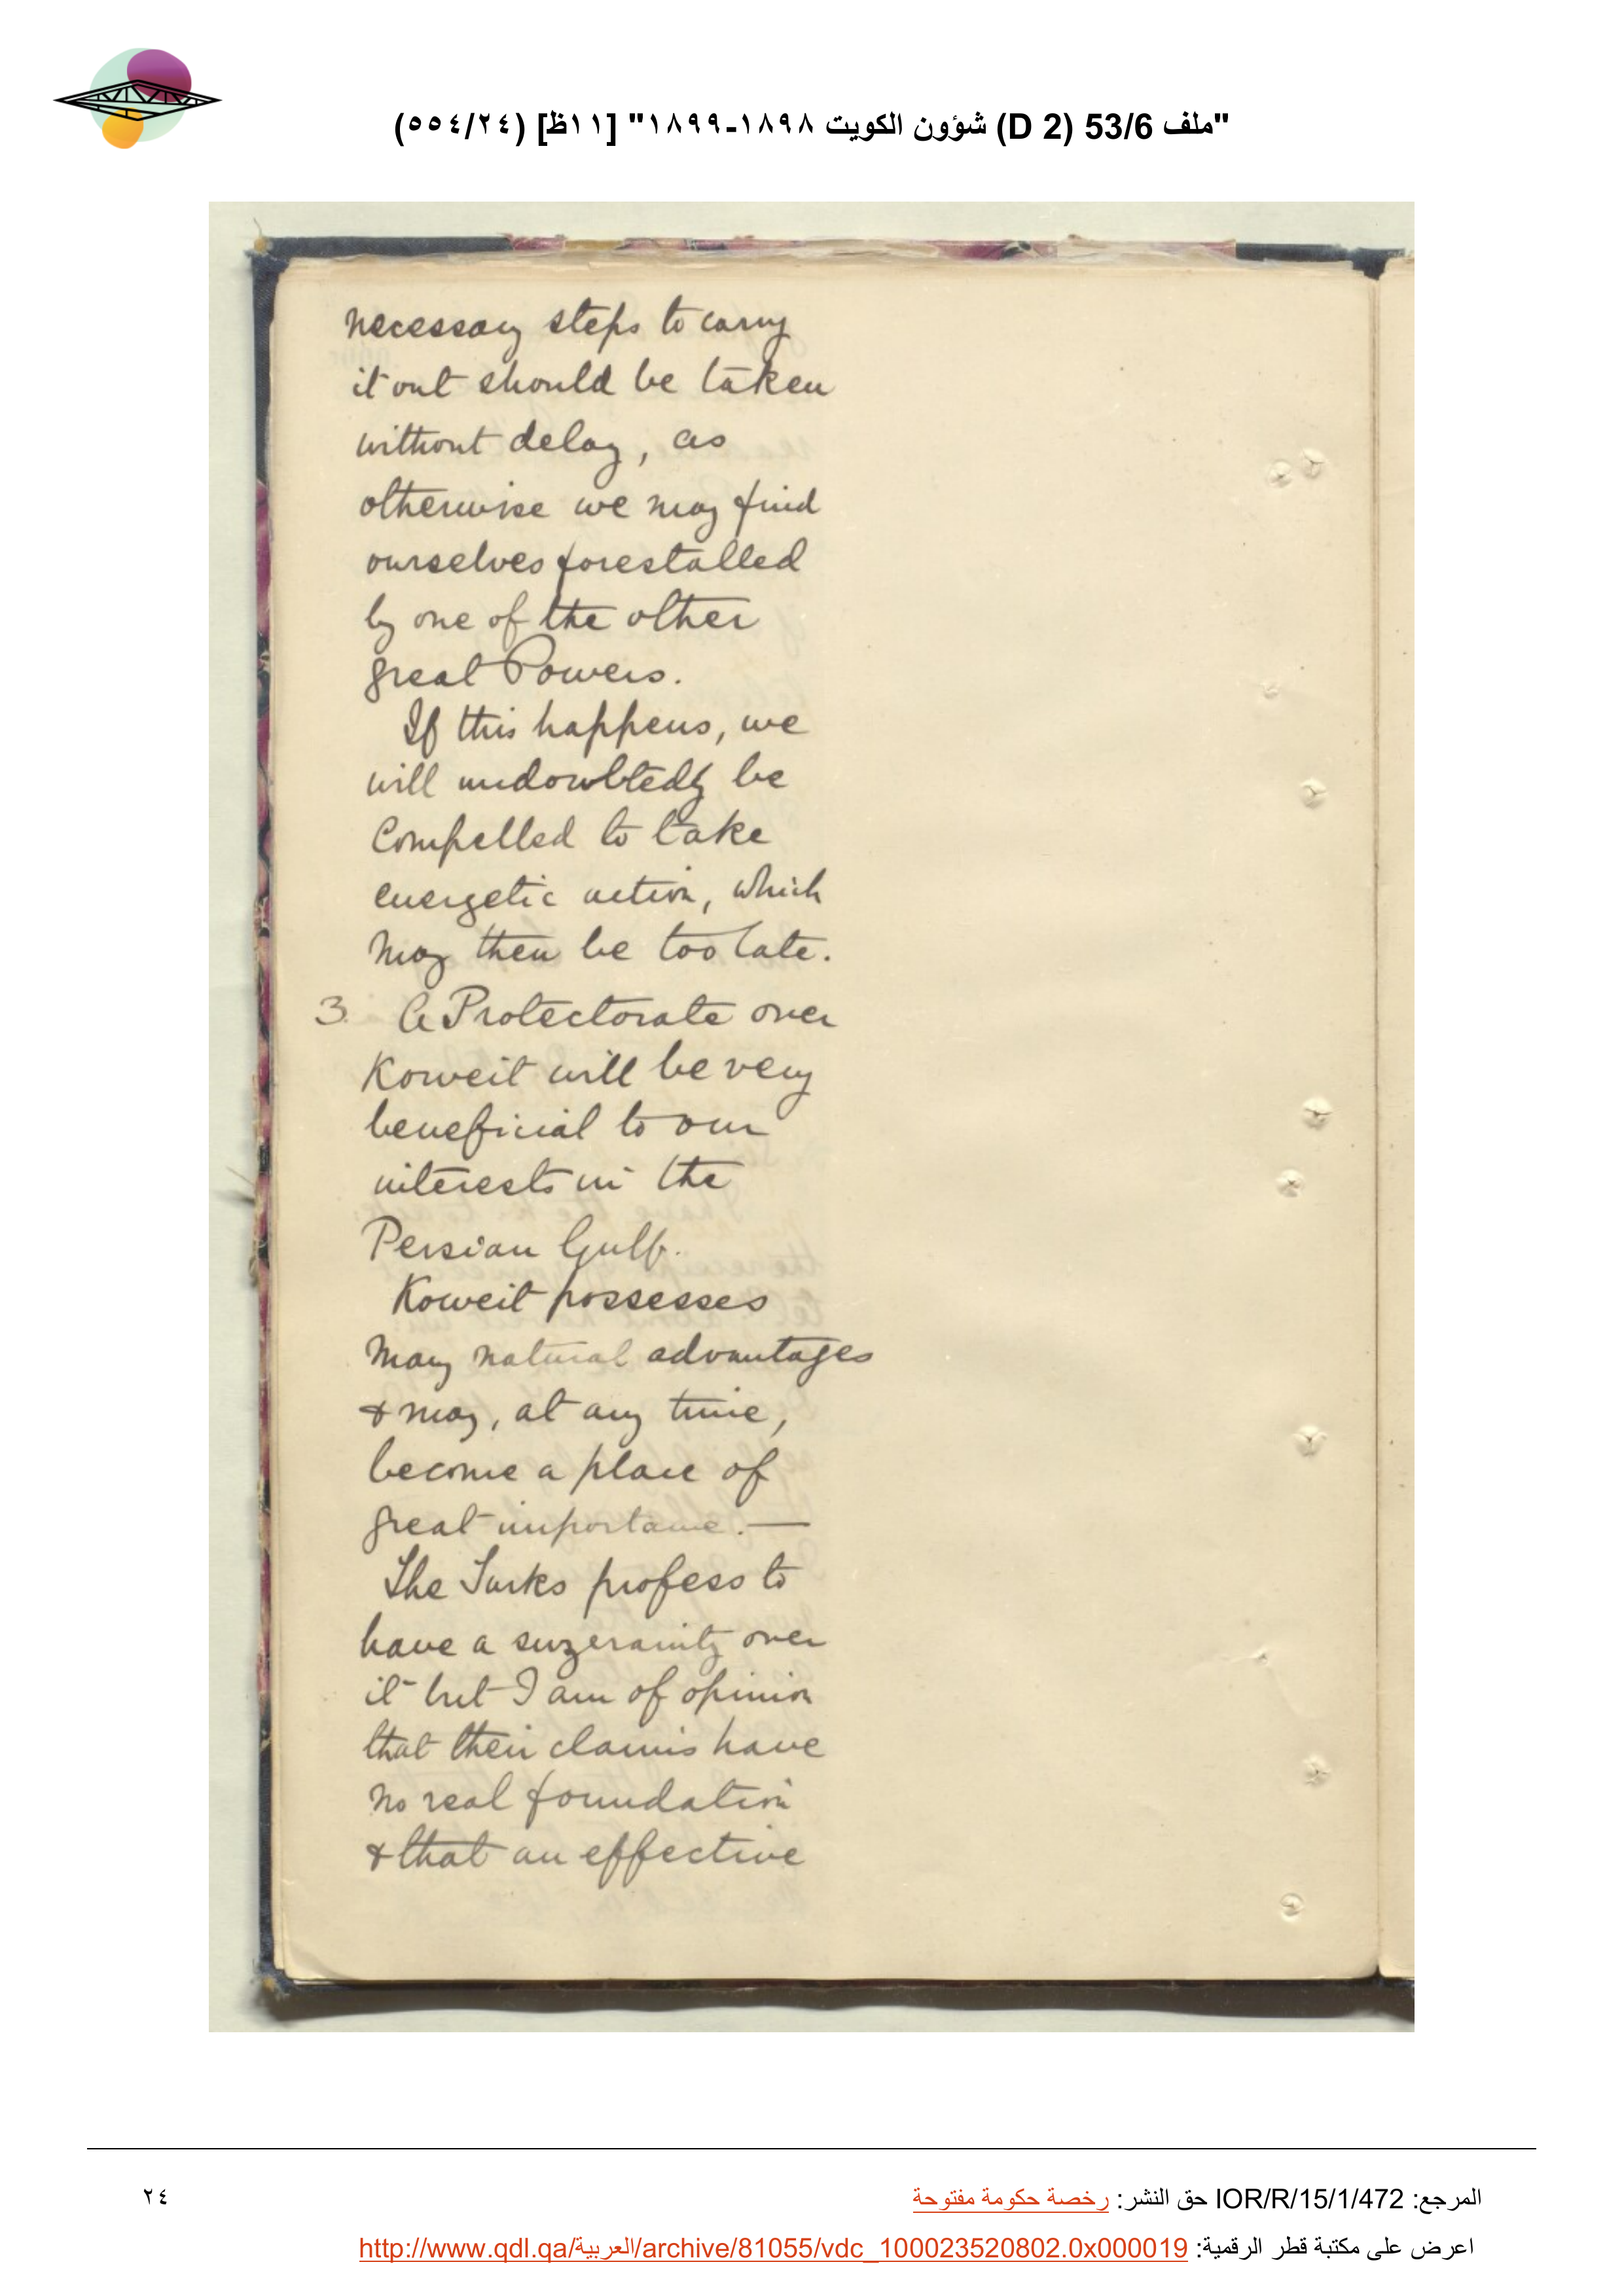 "ملف 53/6 (D 2) شؤون الكويت ١٨٩٨-١٨٩٩" [١١ظ] (٥٥٤/٢٤)
necessary steps to carry
it out should be taken
without delay, as
otherwise we may find
ourselves forestalled
by one of the other
great Powers.
If this happens, we
will undoubtedly be
Compelled to take
energetic action, which
may then be too late.
3. A Protectorate over
Koweit will be very
beneficial to our
interests in the
Persian Gulf.
Koweit possesses
many natural advantages
& may, at any time,
become a place of
great importance. —
The Turks profess to
have a suzerainty over
it but I am of opinion
that their claims have
no real foundation
& that an effective
المرجع: IOR/R/15/1/472 حق النشر: رخصة حكومة مفتوحة
٢٤
اعرض على مكتبة قطر الرقمية: http://www.qdl.qa/العربية/archive/81055/vdc_100023520802.0x000019